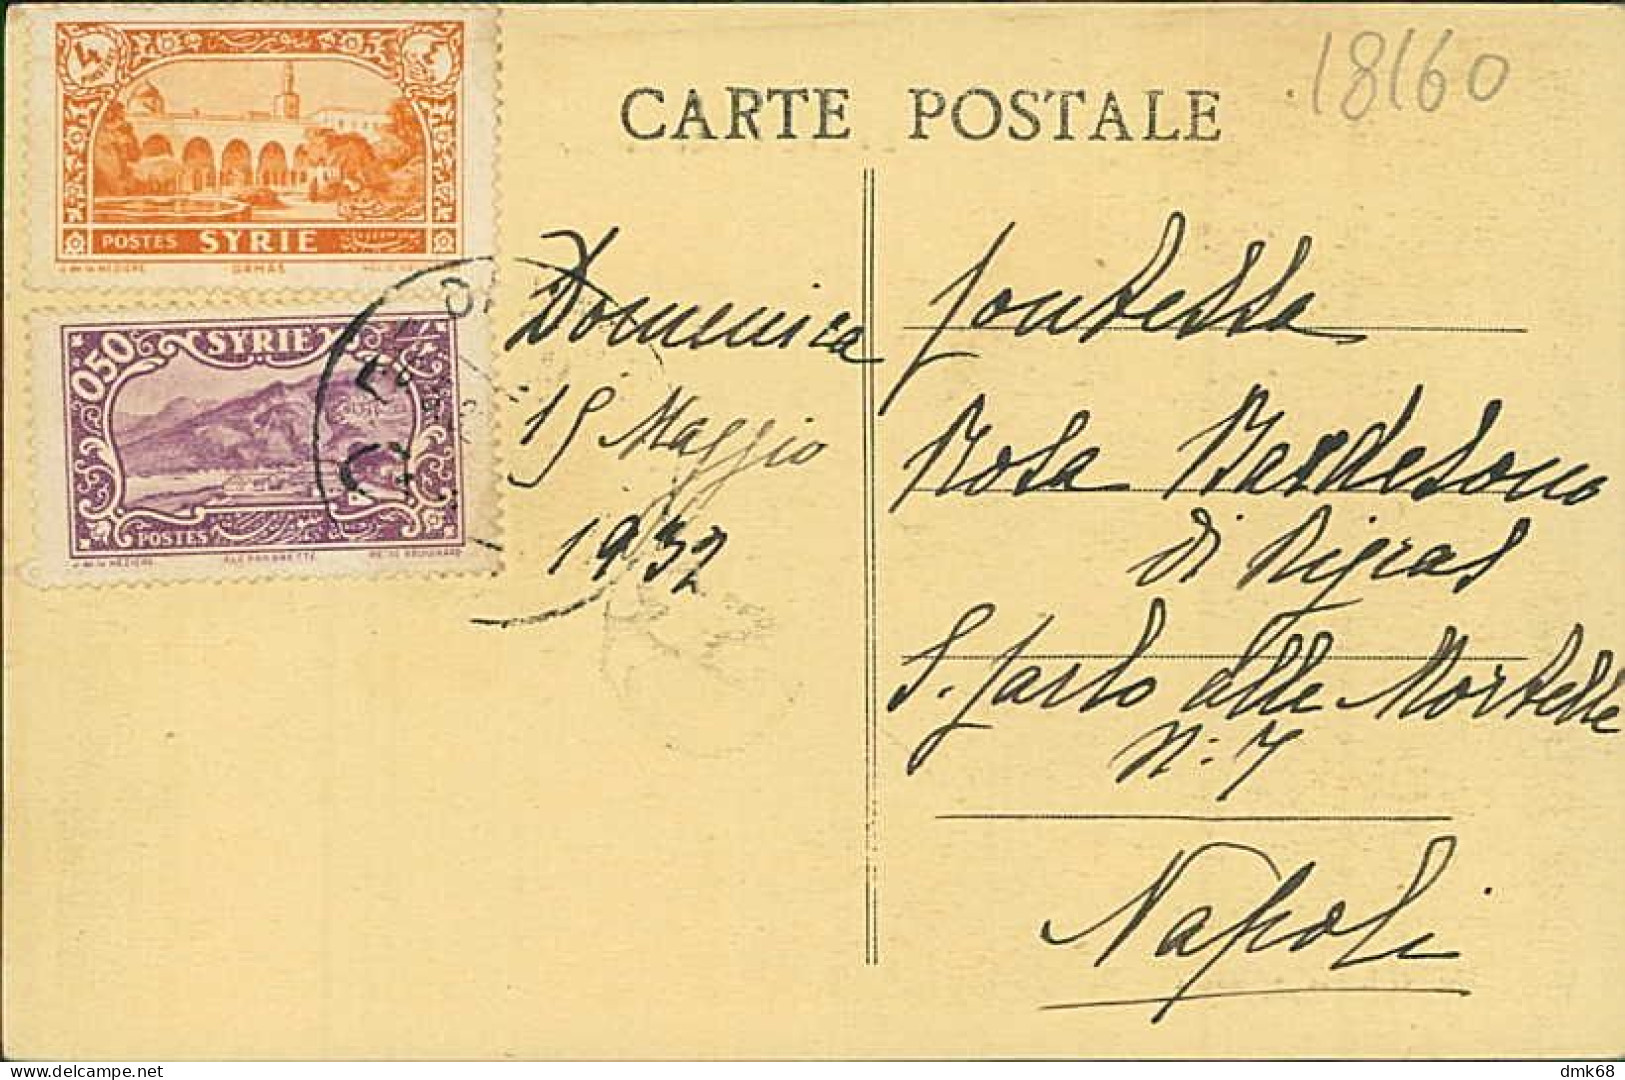 18160
CARTE POSTALE
4
POSTES SYRIE
DAMAS
SYRIE
0.50
POSTES
ALEXANDRETTE
Domenica
15 Maggio
1932
Contessa
Rosa Bardesono
di Rigras
S. Carlo alle Mortelle
N. 7
Napoli
dmk68